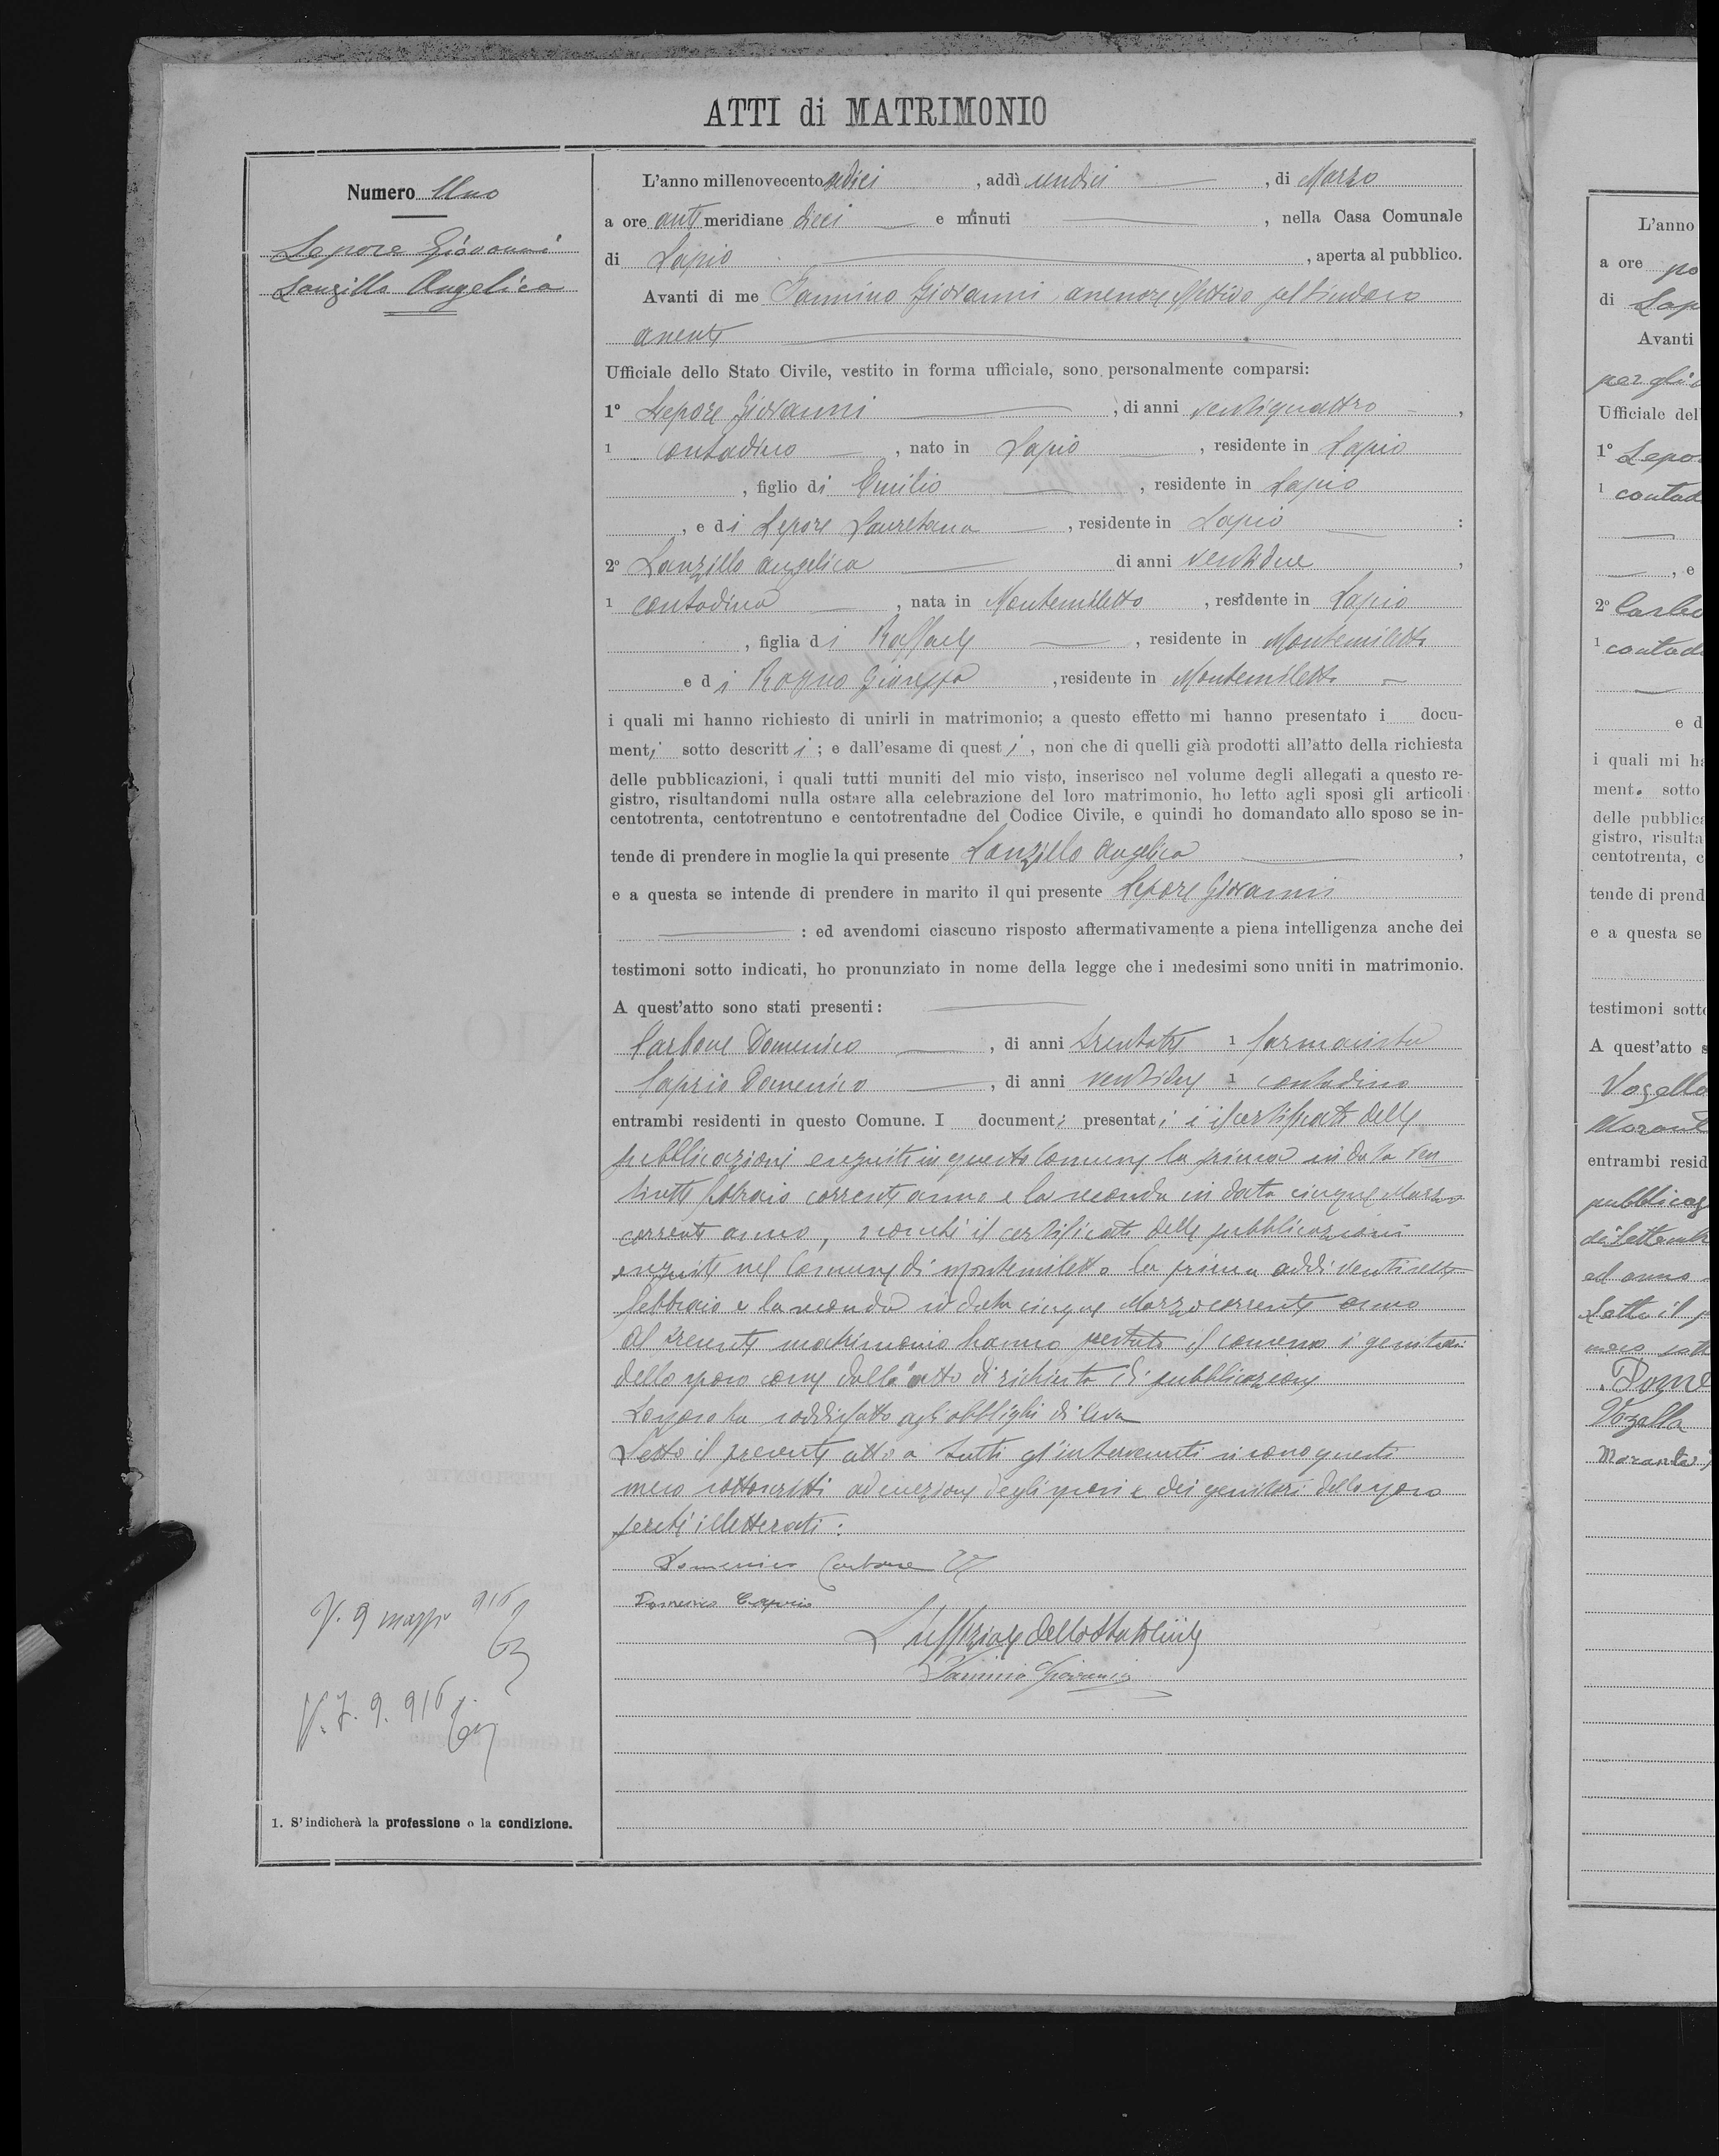 ATTI di MATRIMONIO
Numero Uno
Lepore Giovanni
Lanzilla Angelica
L'anno millenovecento sedici, addì undici, di Marzo
a ore anti meridiane dieci e minuti, nella Casa Comunale
di Lapio, aperta al pubblico.
Avanti di me Giovanni, assessore effettivo pel Sindaco
assente
Ufficiale dello Stato Civile, vestito in forma ufficiale, sono personalmente comparsi:
1° Lepore Giovanni, di anni ventiquattro,
1 contadino, nato in Lapio, residente in Lapio
, figlio di Emilio, residente in Lapio
, e di Lepore Lauretana, residente in Lapio :
2° Lanzillo Angelica di anni ventidue,
1 contadina, nata in Montemiletto, residente in Lapio
, figlia di Raffaele, residente in Montemiletto
e di Rogno Giuseppa, residente in Montemiletto
i quali mi hanno richiesto di unirli in matrimonio; a questo effetto mi hanno presentato i docu-
menti sotto descritti; e dall'esame di questi, non che di quelli già prodotti all'atto della richiesta
delle pubblicazioni, i quali tutti muniti del mio visto, inserisco nel volume degli allegati a questo re-
gistro, risultandomi nulla ostare alla celebrazione del loro matrimonio, ho letto agli sposi gli articoli
centotrenta, centotrentuno e centotrentadue del Codice Civile, e quindi ho domandato allo sposo se in-
tende di prendere in moglie la qui presente Lanzillo Angelica,
e a questa se intende di prendere in marito il qui presente Lepore Giovanni
: ed avendomi ciascuno risposto affermativamente a piena intelligenza anche dei
testimoni sotto indicati, ho pronunziato in nome della legge che i medesimi sono uniti in matrimonio.
A quest'atto sono stati presenti:
Carbone Domenico, di anni trentatre 1 farmacista
Caprio Domenico, di anni ventidue 1 contadino
entrambi residenti in questo Comune. I documenti presentati il certificato delle
pubblicazioni eseguite in questo Comune la prima in data ven
tisette febbraio corrente anno e la seconda in data cinque Marzo
corrente anno, nonchè il certificato delle pubblicazioni
eseguite nel Comune di Montemiletto la prima addì ventisette
febbraio e la seconda in data cinque Marzo corrente anno
Al presente matrimonio hanno prestato il consenso i genitori
dello sposo come dallo atto di richiesta di pubblicazione
Lo sposo ha soddisfatto agli obblighi di leva
Letto il presente atto a tutti gl'intervenuti si sono questi
meco sottoscritti ad eccezione degli sposi e dei genitori dello sposo
perchè illetterati:
Domenico Carbone
Domenico Caprio
L'uffiziale dello Stato Civile
Giovanni
V. 9 maggio 916
V. 7. 9. 916
1. S'indicherà la professione o la condizione.
L'anno
a ore po
di Lap
Avanti
per gli
Ufficiale del
1° Lepo
1 contad
, e
2° Carbo
1 contad
e d
i quali mi ha
ment. sotto
delle pubblica
gistro, risulta
centotrenta, c
tende di prend
e a questa se
testimoni sotto
A quest'atto s
Vozella
Morant
entrambi resid
pubblicaz
di Settemb
ed anno
Letto il p
meco sott
Vozella
Moranto